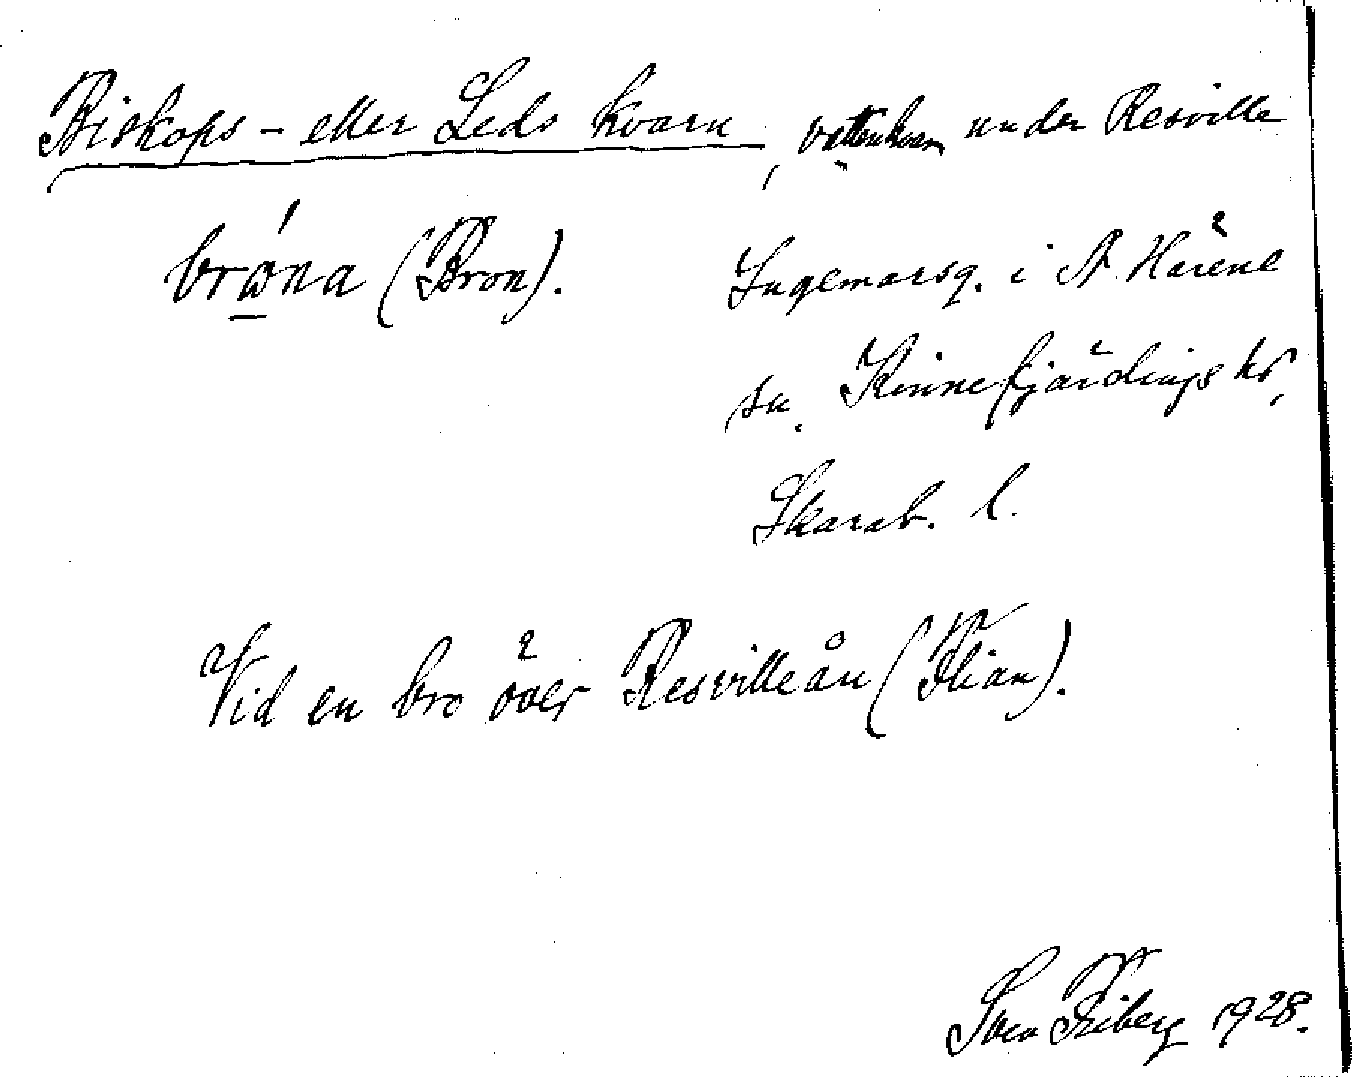 Biskops- eller Leds kvarn, vattenkvarn under Resville
brώna (Bron).
Ingemarsg. i N. Härene
sn, Kinnefjärdings hd,
Skarab. l.
Vid en bro över Resvilleån (Flian).
Sven Friberg 1928.